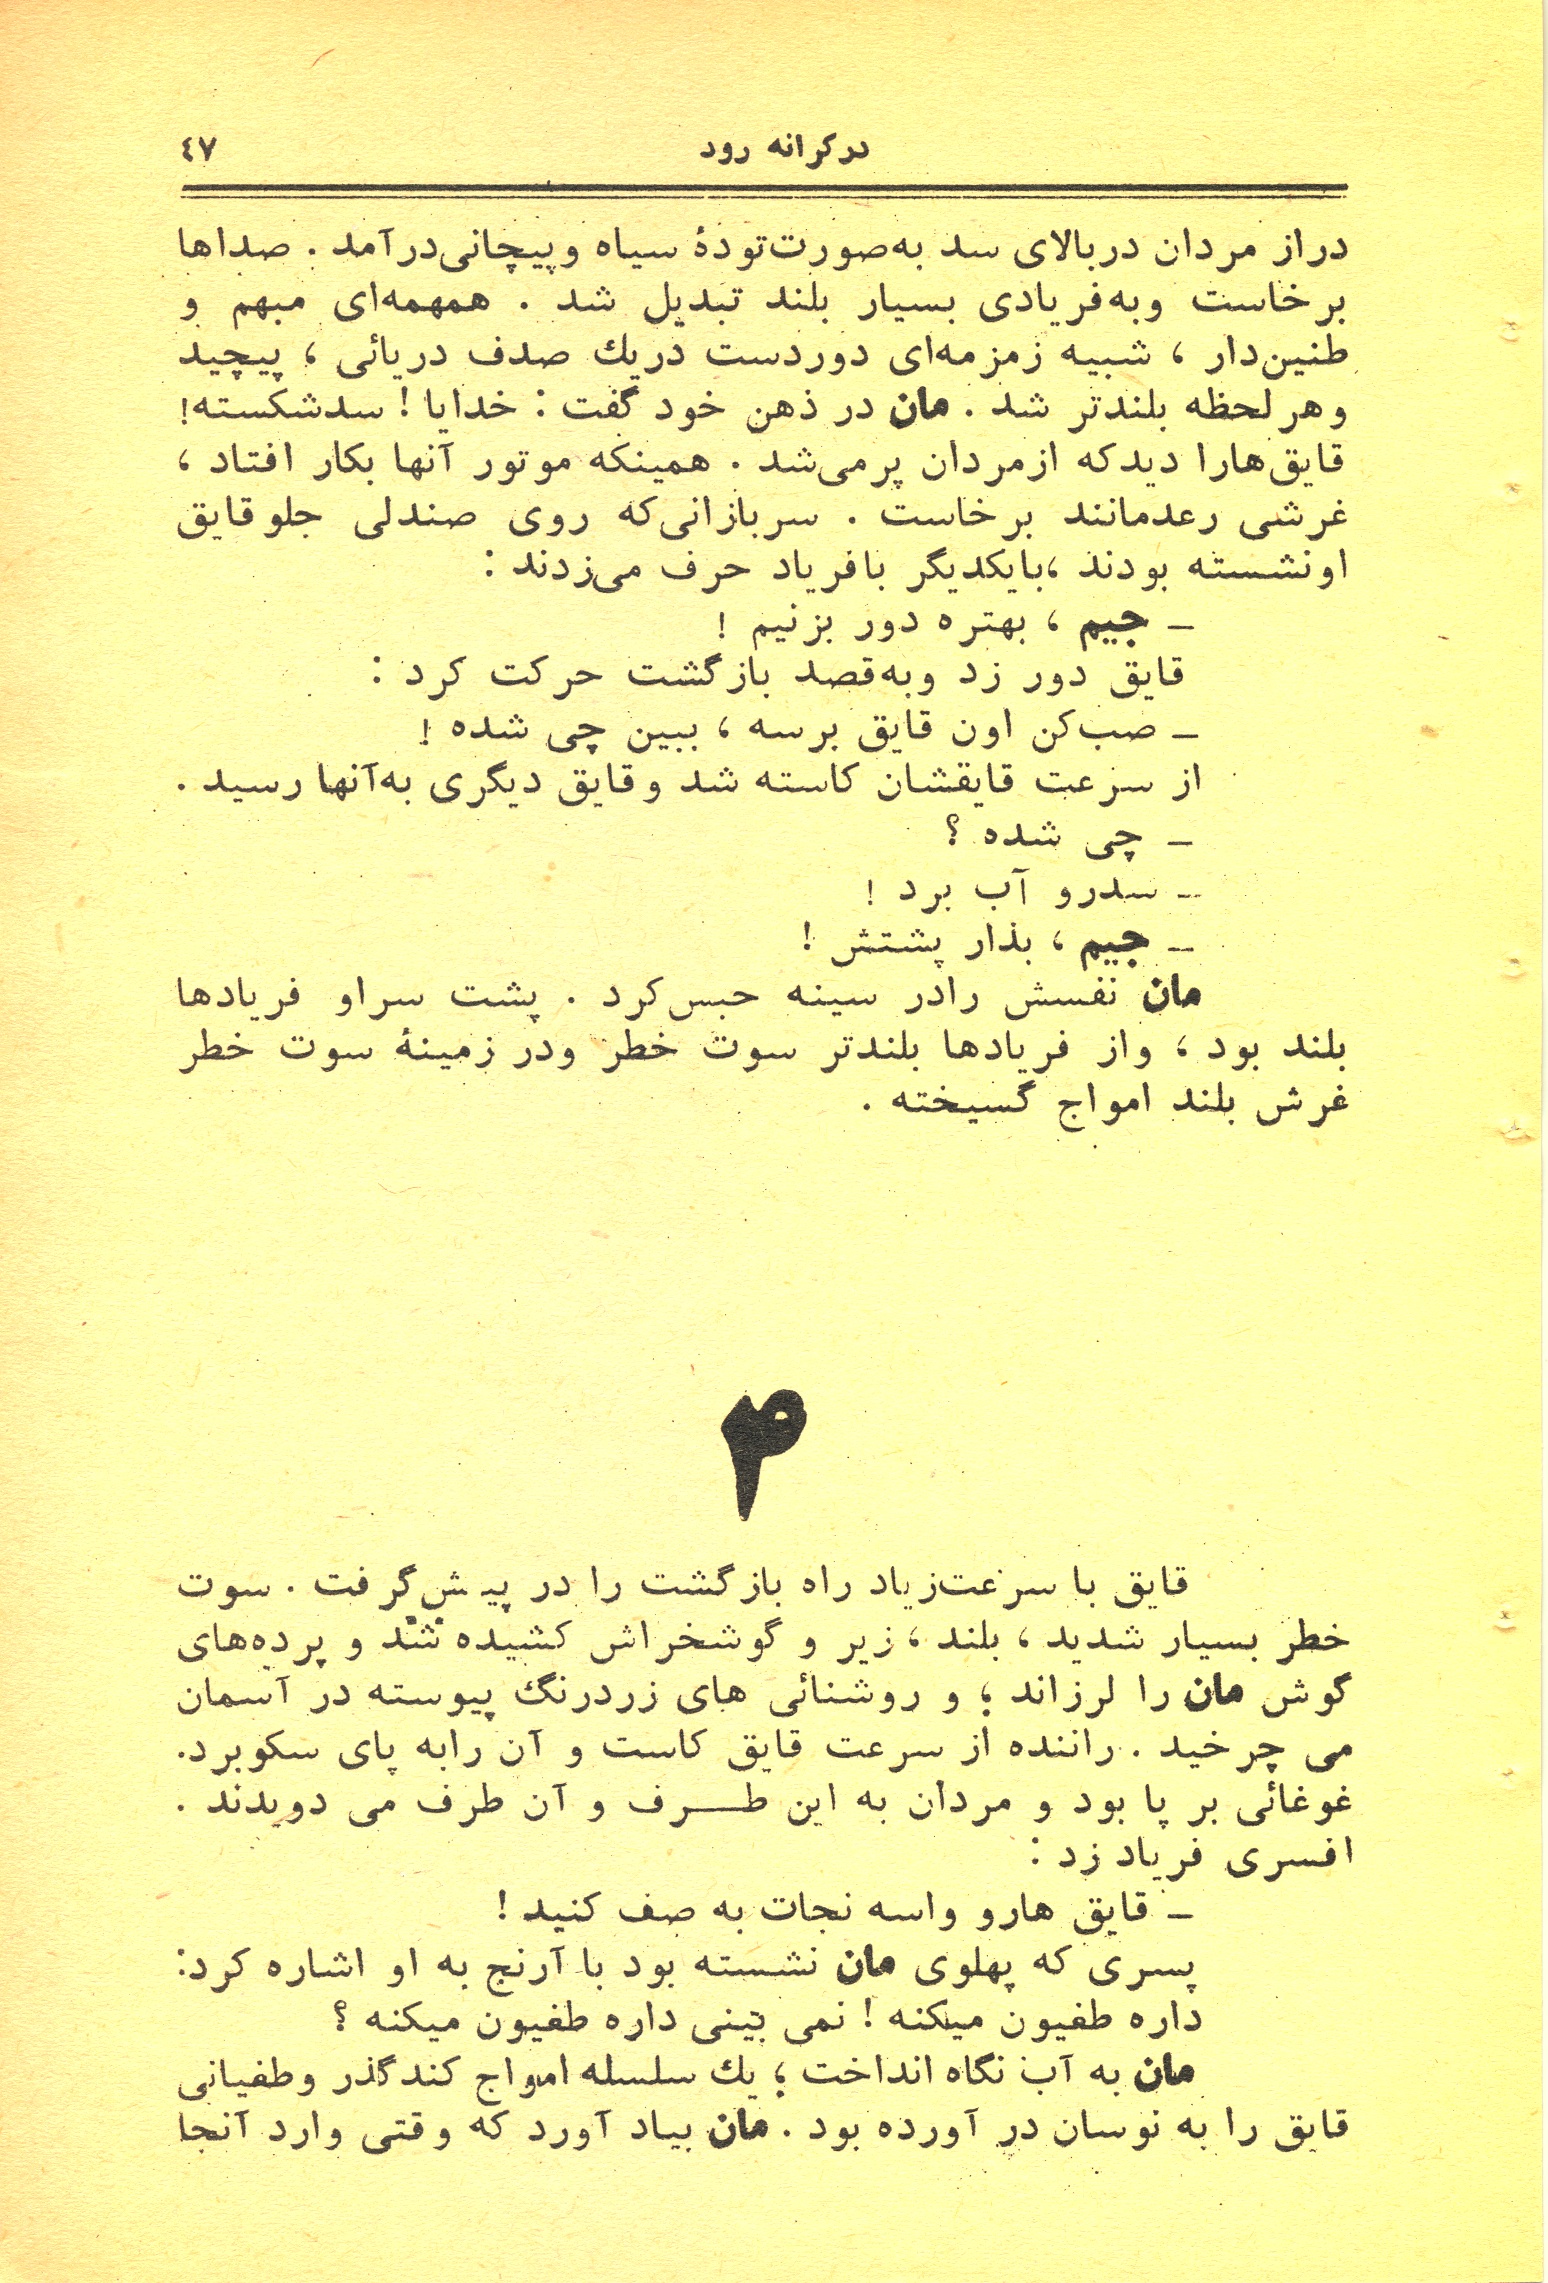 در کرانه رود
٤٧
دراز مردان دربالای سد به‌صورت‌تودهٔ سیاه وپیچانی‌درآمد . صداها
برخاست وبه‌فریادی بسیار بلند تبدیل شد . همهمه‌ای مبهم و
طنین‌دار ، شبیه زمزمه‌ای دوردست دریك صدف دریائی ، پیچید
وهر لحظه بلندتر شد . مان در ذهن خود گفت : خدایا ! سدشکسته!
قایق‌هارا دیدکه ازمردان پرمی‌شد . همینکه موتور آنها بکار افتاد ،
غرشی رعدمانند برخاست . سربازانی‌که روی صندلی جلوقایق
اونشسته بودند ،بایکدیگر بافریاد حرف می‌زدند :
ـ جیم ، بهتره دور بزنیم !
قایق دور زد وبه‌قصد بازگشت حرکت کرد :
ـ صب‌کن اون قایق برسه ، ببین چی شده !
از سرعت قایقشان کاسته شد وقایق دیگری به‌آنها رسید .
ـ چی شده ؟
ـ سدرو آب برد !
ـ جیم ، بذار پشتش !
مان نفسش رادر سینه حبس‌کرد . پشت سراو فریادها
بلند بود ، واز فریادها بلندتر سوت خطر ودر زمینهٔ سوت خطر
غرش بلند امواج گسیخته .
۴
قایق با سرعت‌زیاد راه بازگشت را در پیش‌گرفت . سوت
خطر بسیار شدید ، بلند ، زیر و گوشخراش کشیده شد و پرده‌های
گوش مان را لرزاند ؛ و روشنائی های زردرنگ پیوسته در آسمان
می چرخید . راننده از سرعت قایق کاست و آن رابه پای سکوبرد.
غوغائی بر پا بود و مردان به این طـــرف و آن طرف می دویدند .
افسری فریاد زد :
ـ قایق هارو واسه نجات به صف کنید !
پسری که پهلوی مان نشسته بود با آرنج به او اشاره کرد:
داره طفیون میکنه ! نمی بینی داره طفیون میکنه ؟
مان به آب نگاه انداخت ؛ یك سلسله امواج کندگذر وطفیانی
قایق را به نوسان در آورده بود . مان بیاد آورد که وقتی وارد آنجا